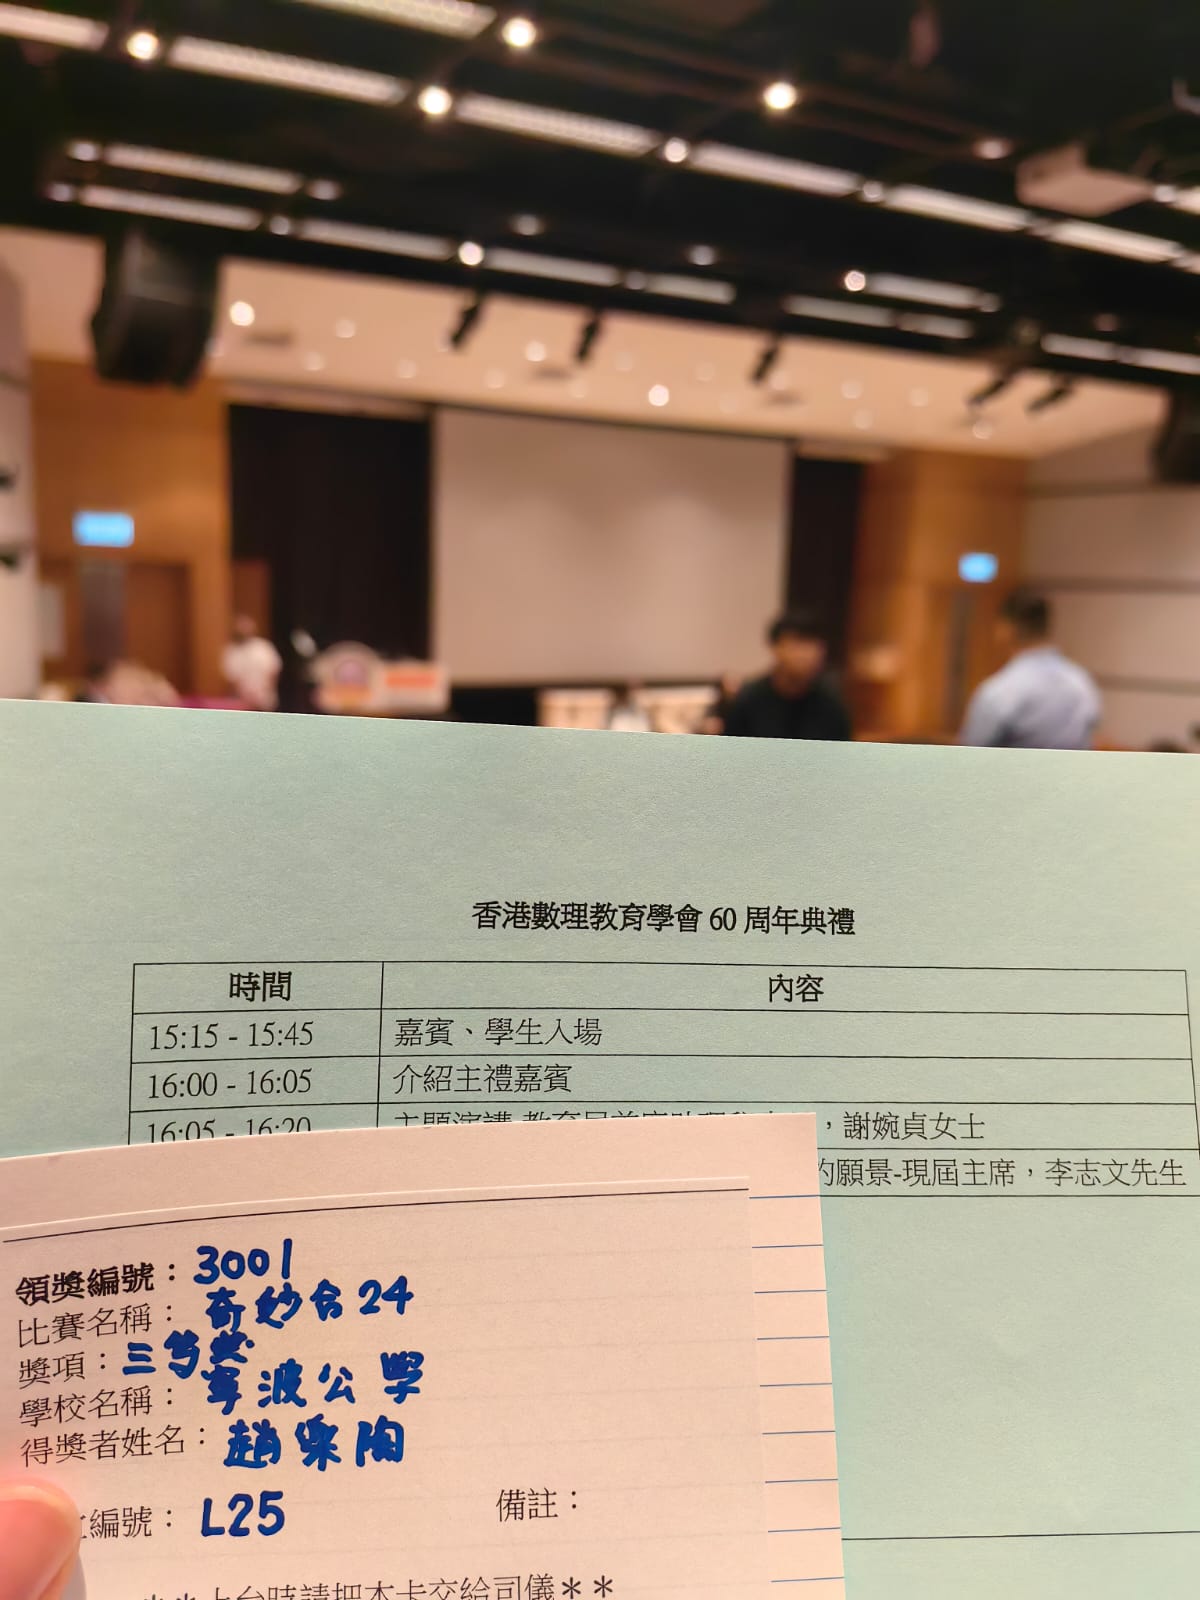 香港數理教育學會 60 周年典禮
時間 內容
15:15 - 15:45 嘉賓、學生入場
16:00 - 16:05 介紹主禮嘉賓
16:05 - 16:20 主題演講-教育局首席助理 ，謝婉貞女士
的願景-現屆主席，李志文先生
領獎編號：3001
比賽名稱：奇妙合24
獎項：三等獎
學校名稱：寧波公學
得獎者姓名：趙樂陶
編號：L25
備註：
**上台時請把本卡交給司儀**